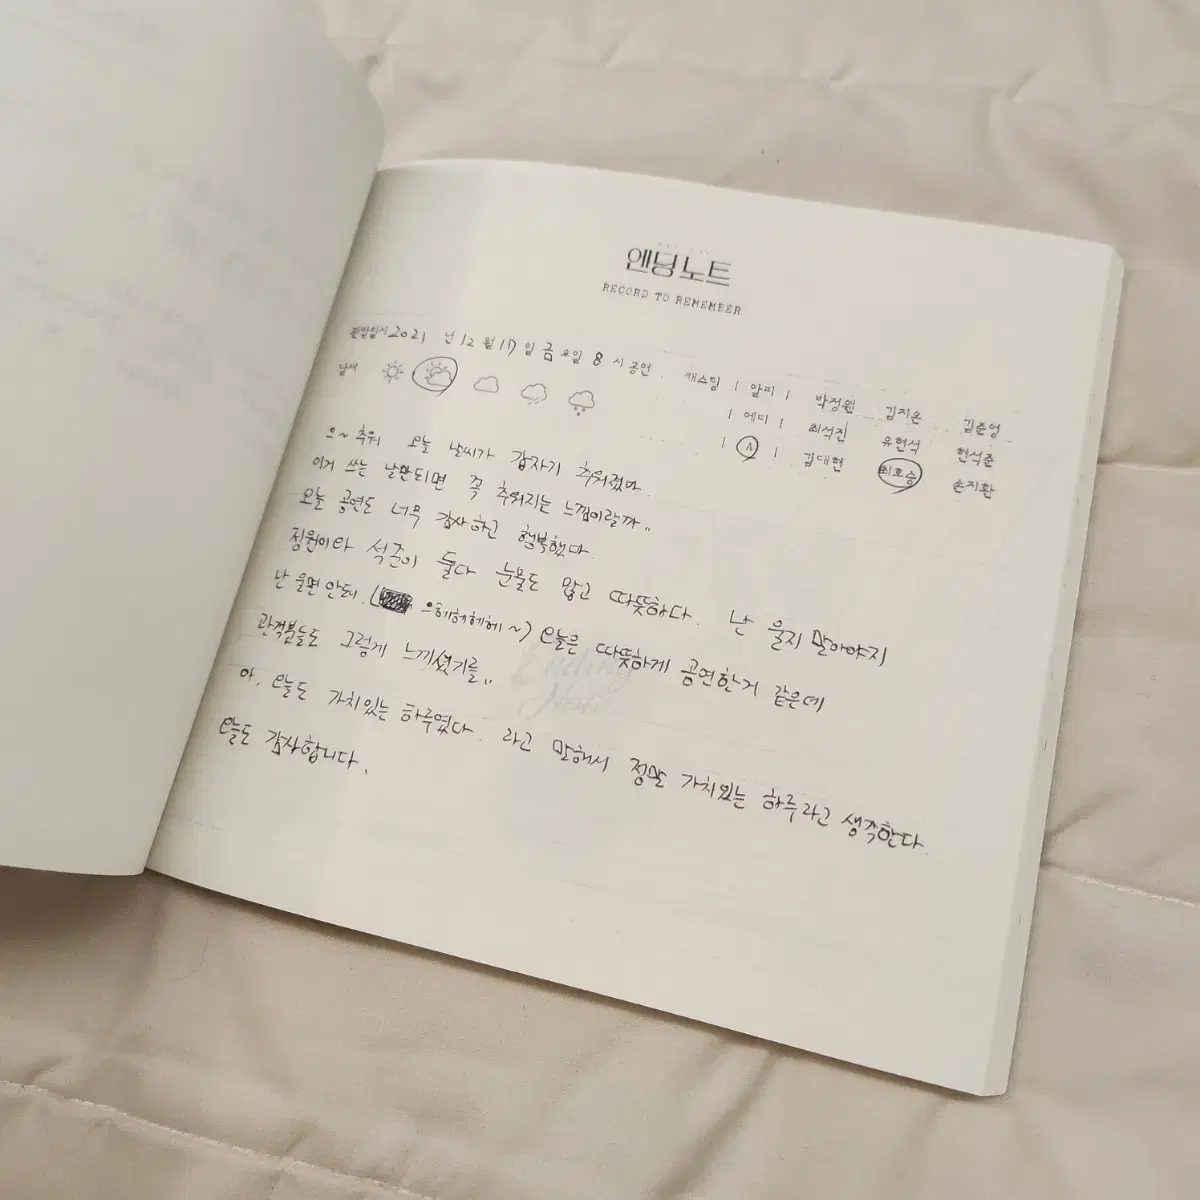 엔딩노트
RECORD TO REMEMBER
관람일시 2021 년 12 월 17 일 금 요일 8 시 공연
날씨
캐스팅 | 알피 | 박정원 김지온 김준영
| 에디 | 최석진 유현석 현석준
| A | 김대현 최호승 손지환
으~ 추워 오늘 날씨가 갑자기 추워졌다.
이거 쓰는 날만되면 꼭 추워지는 느낌이랄까..
오늘 공연도 너무 감사하고 행복했다.
정원이랑 석준이 둘다 눈물도 많고 따뜻하다. 난 울지 말아야지
난 울면 안돼. ( 으헤헤헤헤~) 오늘은 따뜻하게 공연한거 같은데
관객분들도 그렇게 느끼셨기를..
아, 오늘도 가치있는 하루였다. 라고 말해서 정말 가치있는 하루라고 생각한다.
오늘도 감사합니다.
Ending
Note